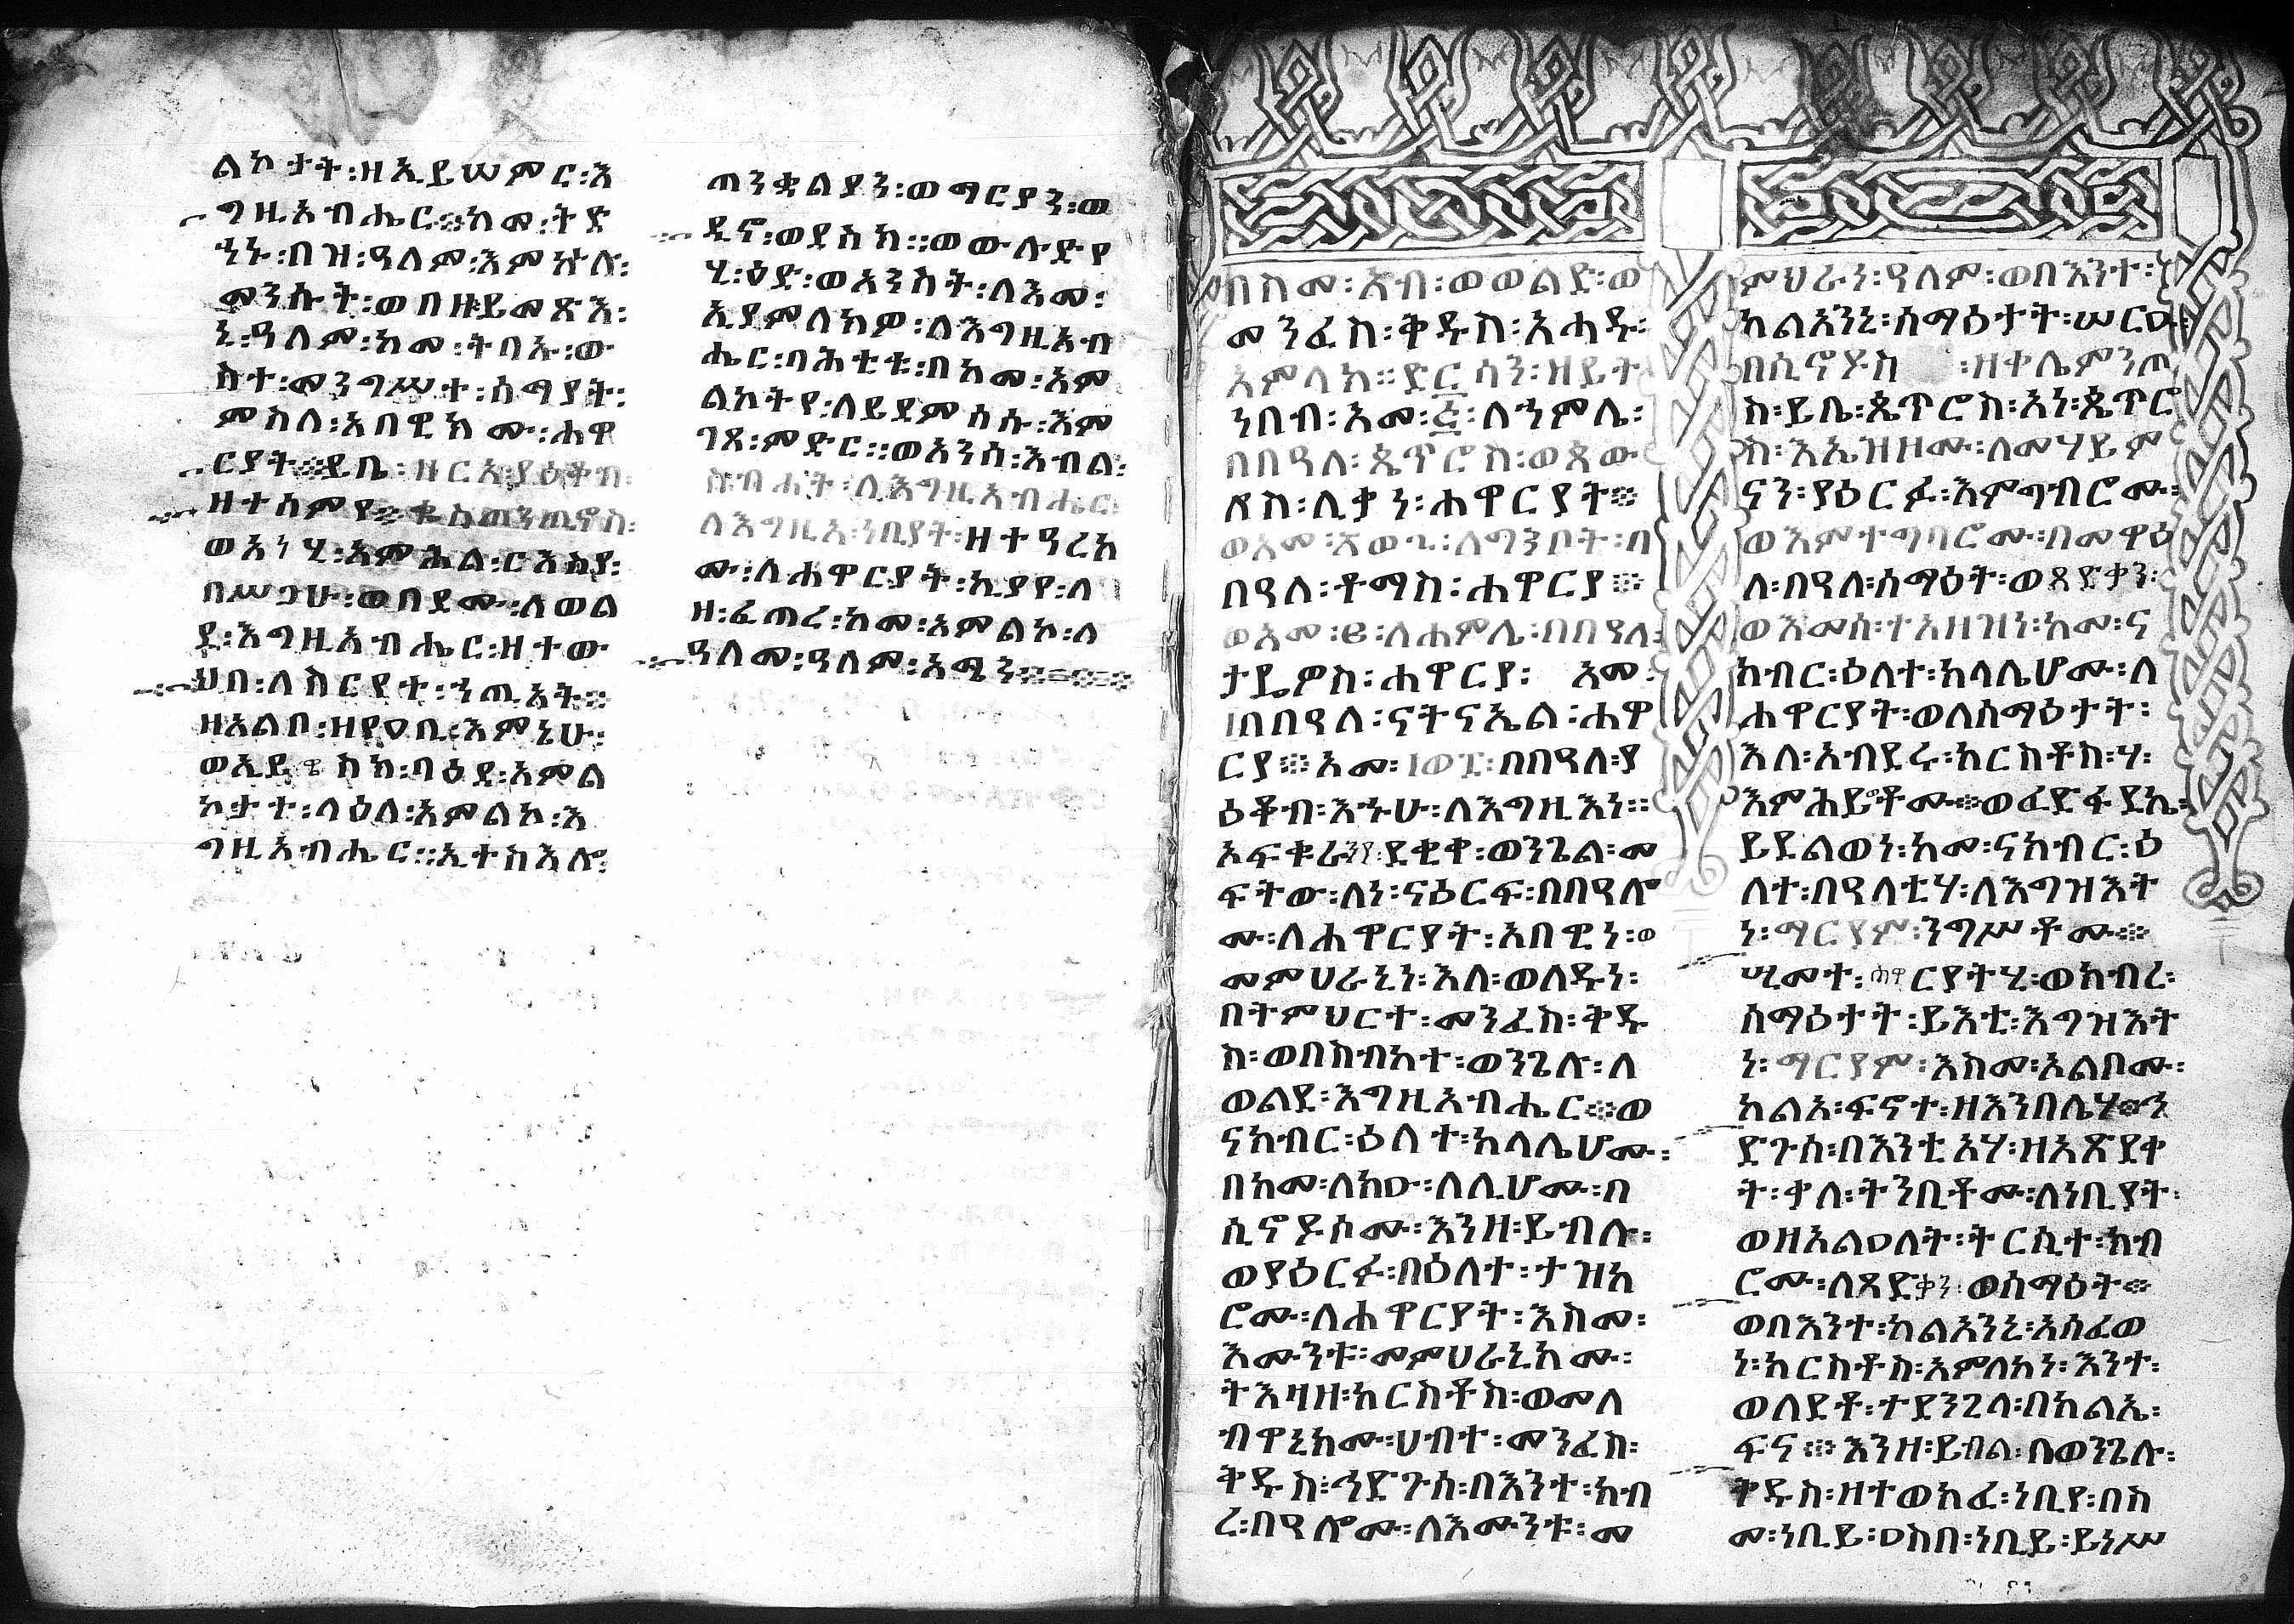 ልኮታት፡ዘኢይሠምር፡እ
ግዚአብሔር፨ከመ፡ትድ
ኀኑ፡በዝ፡ዓለም፡እምኵሉ፡
መንሱት፡ወበዘይመጽእ፡
ኒ፡ዓለም፡ከመ፡ትባኡ፡ው
ስተ፡መንግሥተ፡ሰማያት፡
ምስለ፡አበዊክሙ፡ሐዋ
ርያት፨ይቤ፡ዘርአ፡ያዕቆብ፡
ዘተሰምየ፨ቈስጠንጢኖስ፡
ወአነሂ፡አምሕል፡ርእስየ፡
በሥጋሁ፡ወበደሙ፡ለወል
ደ፡እግዚአብሔር፡ዘተው
ህበ፡ለስርየተ፡ኀጢአት፨
ዘአልቦ፡ዘየዐቢ፡እምኔሁ፡
ወኢይሴክክ፡ባዕደ፡አምል
ኮታተ፡ላዕለ፡አምልኮ፡እ
ግዚአብሔር፡፡ኢተክእሎ፡
ጠንቋልያን፡ወማርያን፡ወ
ዲኖ፡ወደስክ፡፡ወውሉድየ
ሂ፡ዕድ፡ወአንስት፡ለእመ፡
ኢያምለክዎ፡ለእግዚአብ
ሔር፡ባሕቲቱ፡በከመ፡አም
ልኮትየ፡ለይደምሰሱ፡እም
ገጸ፡ምድር፡፡ወአንሰ፡እብል፡
ስብሐት፡ለእግዚአብሔር፡
ለእግዚአ፡ነቢያት፡ዘተዓረከ
ሙ፡ለሐዋርያት፡ኪያየ፡ለ
ዘ፡ፈጠረ፡ከመ፡አምልኮ፡ለ
ዓለመ፡ዓለም፡አሜን፨
በስመ፡አብ፡ወወልድ፡ወ
መንፈስ፡ቅዱስ፡አሓዱ፡
አምላክ፡፡ድርሳን፡ዘይት
ነበብ፡አመ፡፭፡ለኀምሌ፡
በበዓለ፡ጴጥሮስ፡ወጳው
ሎስ፡ሊቃነ፡ሐዋርያት፨
በዓለ፡ቶማስ፡ሐዋርያ፨
ወአመ፡፱፡ለሐምሌ፡በበዓለ፡
ታዴዎስ፡ሐዋርያ፡ አመ፡
፲በበዓለ፡ናትናኤል፡ሐዋ
ርያ፨አመ፡፲ወ፰፡በበዓለ፡ያ
ዕቆብ፡እኁሁ፡ለእግዚእነ፡፡
አፍቁራንየ፡ደቂቀ፡ወንጌል፡መ
ፍትው፡ለነ፡ናዕርፍ፡በበዓሎ
ሙ፡ለሐዋርያት፡አበዊነ፡ወ
መምህራኒነ፡እለ፡ወለዱነ፡
በትምህርተ፡መንፈስ፡ቅዱ
ስ፡ወበስብከተ፡ወንጌሉ፡ለ
ወልደ፡እግዚአብሔር፨ወ
ናክብር፡ዕለተ፡ከላሌሆሙ፡
በከመ፡ለከዉ፡ለሊሆሙ፡በ
ሲኖዶሶሙ፡እንዘ፡ይብሉ፡
ወያዕርፉ፡በዕለተ፡ታዝካ
ሮሙ፡ለሐዋርያት፡እስመ፡
እሙንቱ፡መምህራኒክሙ፡
ትእዛዘ፡ክርስቶስ፡ወመለ
ብዋኒክሙ፡ሀብተ፡መንፈስ፡
ቅዱስ፡ኅድጉሰ፡በእንተ፡ክብ
ረ፡በዓሎሙ፡ለእሙንቱ፡መ
ምህራነ፡ዓለም፡ወበእንተ፡
ካልኣንኒ፡ሰማዕታት፡ሠርዑ፡
በሲኖዶስ ፡ዘቀሌምንጦ
ስ፡ይቤ፡ጴጥሮስ፡አነ፡ጴጥሮ
ስ፡እኤዝዞሙ፡ለመሃይም
ናን፡ያዕርፉ፡እምግብሮሙ፡
ወእምተግባሮሙ፡በመዋዕ
ለ፡በዓለ፡ሰማዕት፡ወጻድቃን፡
ወእመሰ፡ተአዘዝነ፡ከመ፡ና
ክብር፡ዕለተ፡ከላሌሆሙ፡ለ
ሐዋርያት፡ወለሰማዕታት፡
እለ፡አብደሩ፡ክርስቶስ፡ሃ፡
እምሕይዎቶሙ፨ወፈድፋደኬ፡
ይደልወነ፡ከመ፡ናክብር፡ዕ
ለተ፡በዓላቲሃ፡ለእግዝእት
ነ፡ማርያም፡ንግሥቶሙ፨
ሢመተ፡ሐዋርያትሂ፡ወክብረ፡
ሰማዕታት፡ይእቲ፡እግዝእት
ነ፡ማርያም፡እስመ፡አልቦሙ፡
ካልእ፡ፍኖተ፡ዘእንበሌሃ፨ኅ
ድጉሰ፡በእንቲአሃ፡ዘአጽደቀ
ት፡ቃለ፡ትንቢቶሙ፡ለነቢያት፡
ወዘአልዐለት፡ትርሲተ፡ክብ
ሮሙ፡ለጻድቃን፡ወሰማዕት፨
ወበእንተ፡ካልኣንኒ፡አሰፈወ
ነ፡ክርስቶስ፡አምላክነ፡እንተ፡
ወለደቶ፡ተደንጊላ፡በክልኤ፡
ፍና፨እንዘ፡ይብል፡በወንጌሉ፡
ቅዱስ፡ዘተወክፈ፡ነቢየ፡በስ
መ፡ነቢይ፡ዐስበ፡ነቢይ፡ይነሥ